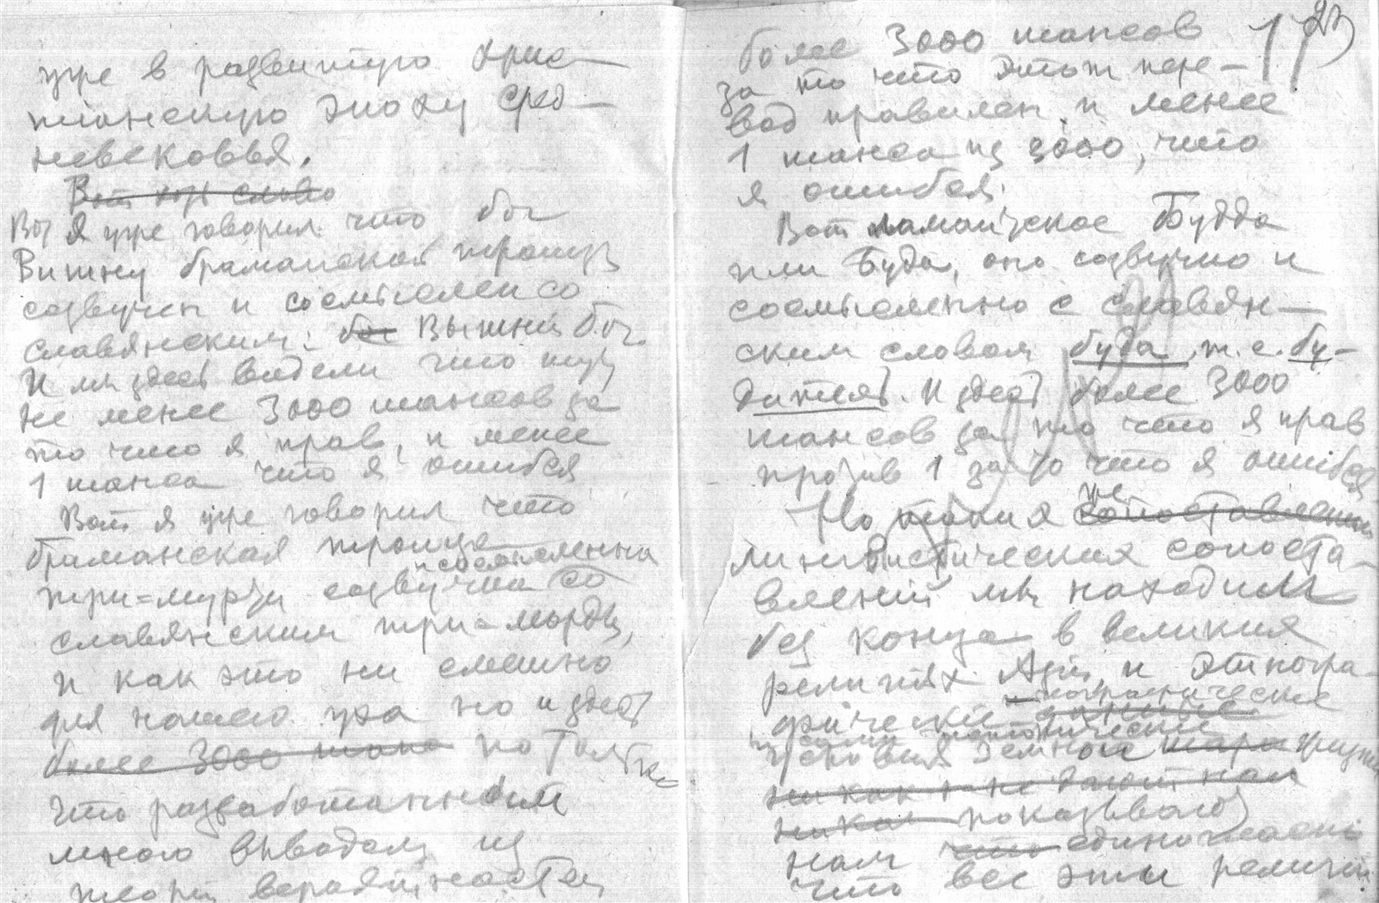 уже в развитую хрис-
тианскую эпоху сред-
невековья.
Вот хоть слово
Вот я уже говорил что бог
Вишну браманской троицы
созвучен и сосмысленен со
славянским: бог Вышний бог.
И мы здесь видели что тут
не менее 3000 шансов за
то что я прав, и менее
1 шанса что я ошибся
Вот я уже говорил что
браманская троица
и сосмысленна
три=мурти созвучна со
славянским три=морды,
и как это ни смешно
для нашего уха но и здесь
более 3000 шанс по только
что разработанным
мною выводам из
теории вероятностей
173
более 3000 шансов
за то что этот пере-
вод правилен и менее
1 шанса из 3000, что
я ошибся.
Вот ламайское Будда
или Буда, оно созвучно и
сосмысленно с славян-
ским словом буда т.е. бу-
дитель. И здесь более 3000
шансов за то что я прав
против 1 за то что я ошибся
Но такия же сопоставления
лингвистических сопоста-
влений мы находим
без конца в великих
религиях Азии и этногра-
фические данные
географические
условия земной жизни
никак не дают нам
показывают
нам что единогласно
что все эти религии